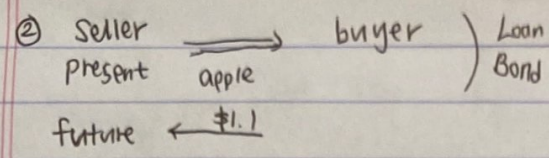 ② Seller buyer Loan
present apple Bond
future $1.1